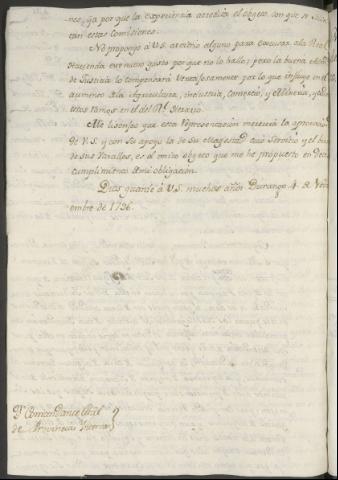 nes, ya por que la experiencia acredita el objeto con que se
tan estas comisiones.
No propongo à V.S. arvitrio alguno para escusar a la Real
Hacienda este nuevo gasto por que no lo hallo; pero la buena
de Justicia lo compensará ventajosamente por lo que influye en el
aumento de la Agricultura, industria, Comercio, y Mineria, y
estos ramos en el del Rl. Herario.
Me lisonjeo que esta representacion merecerá la aprovacion
de V.S. y con su apoyo la de su Magestad, cuio Servicio y el
de sus Vasallos, es el unico objeto que me he propuesto en
cumplimiento de mi obligacion.
Dios guarde à V.S. muchos años Durango 4 de
embre de 1796.
Sr. Comandante Gral
de Provincias Internas